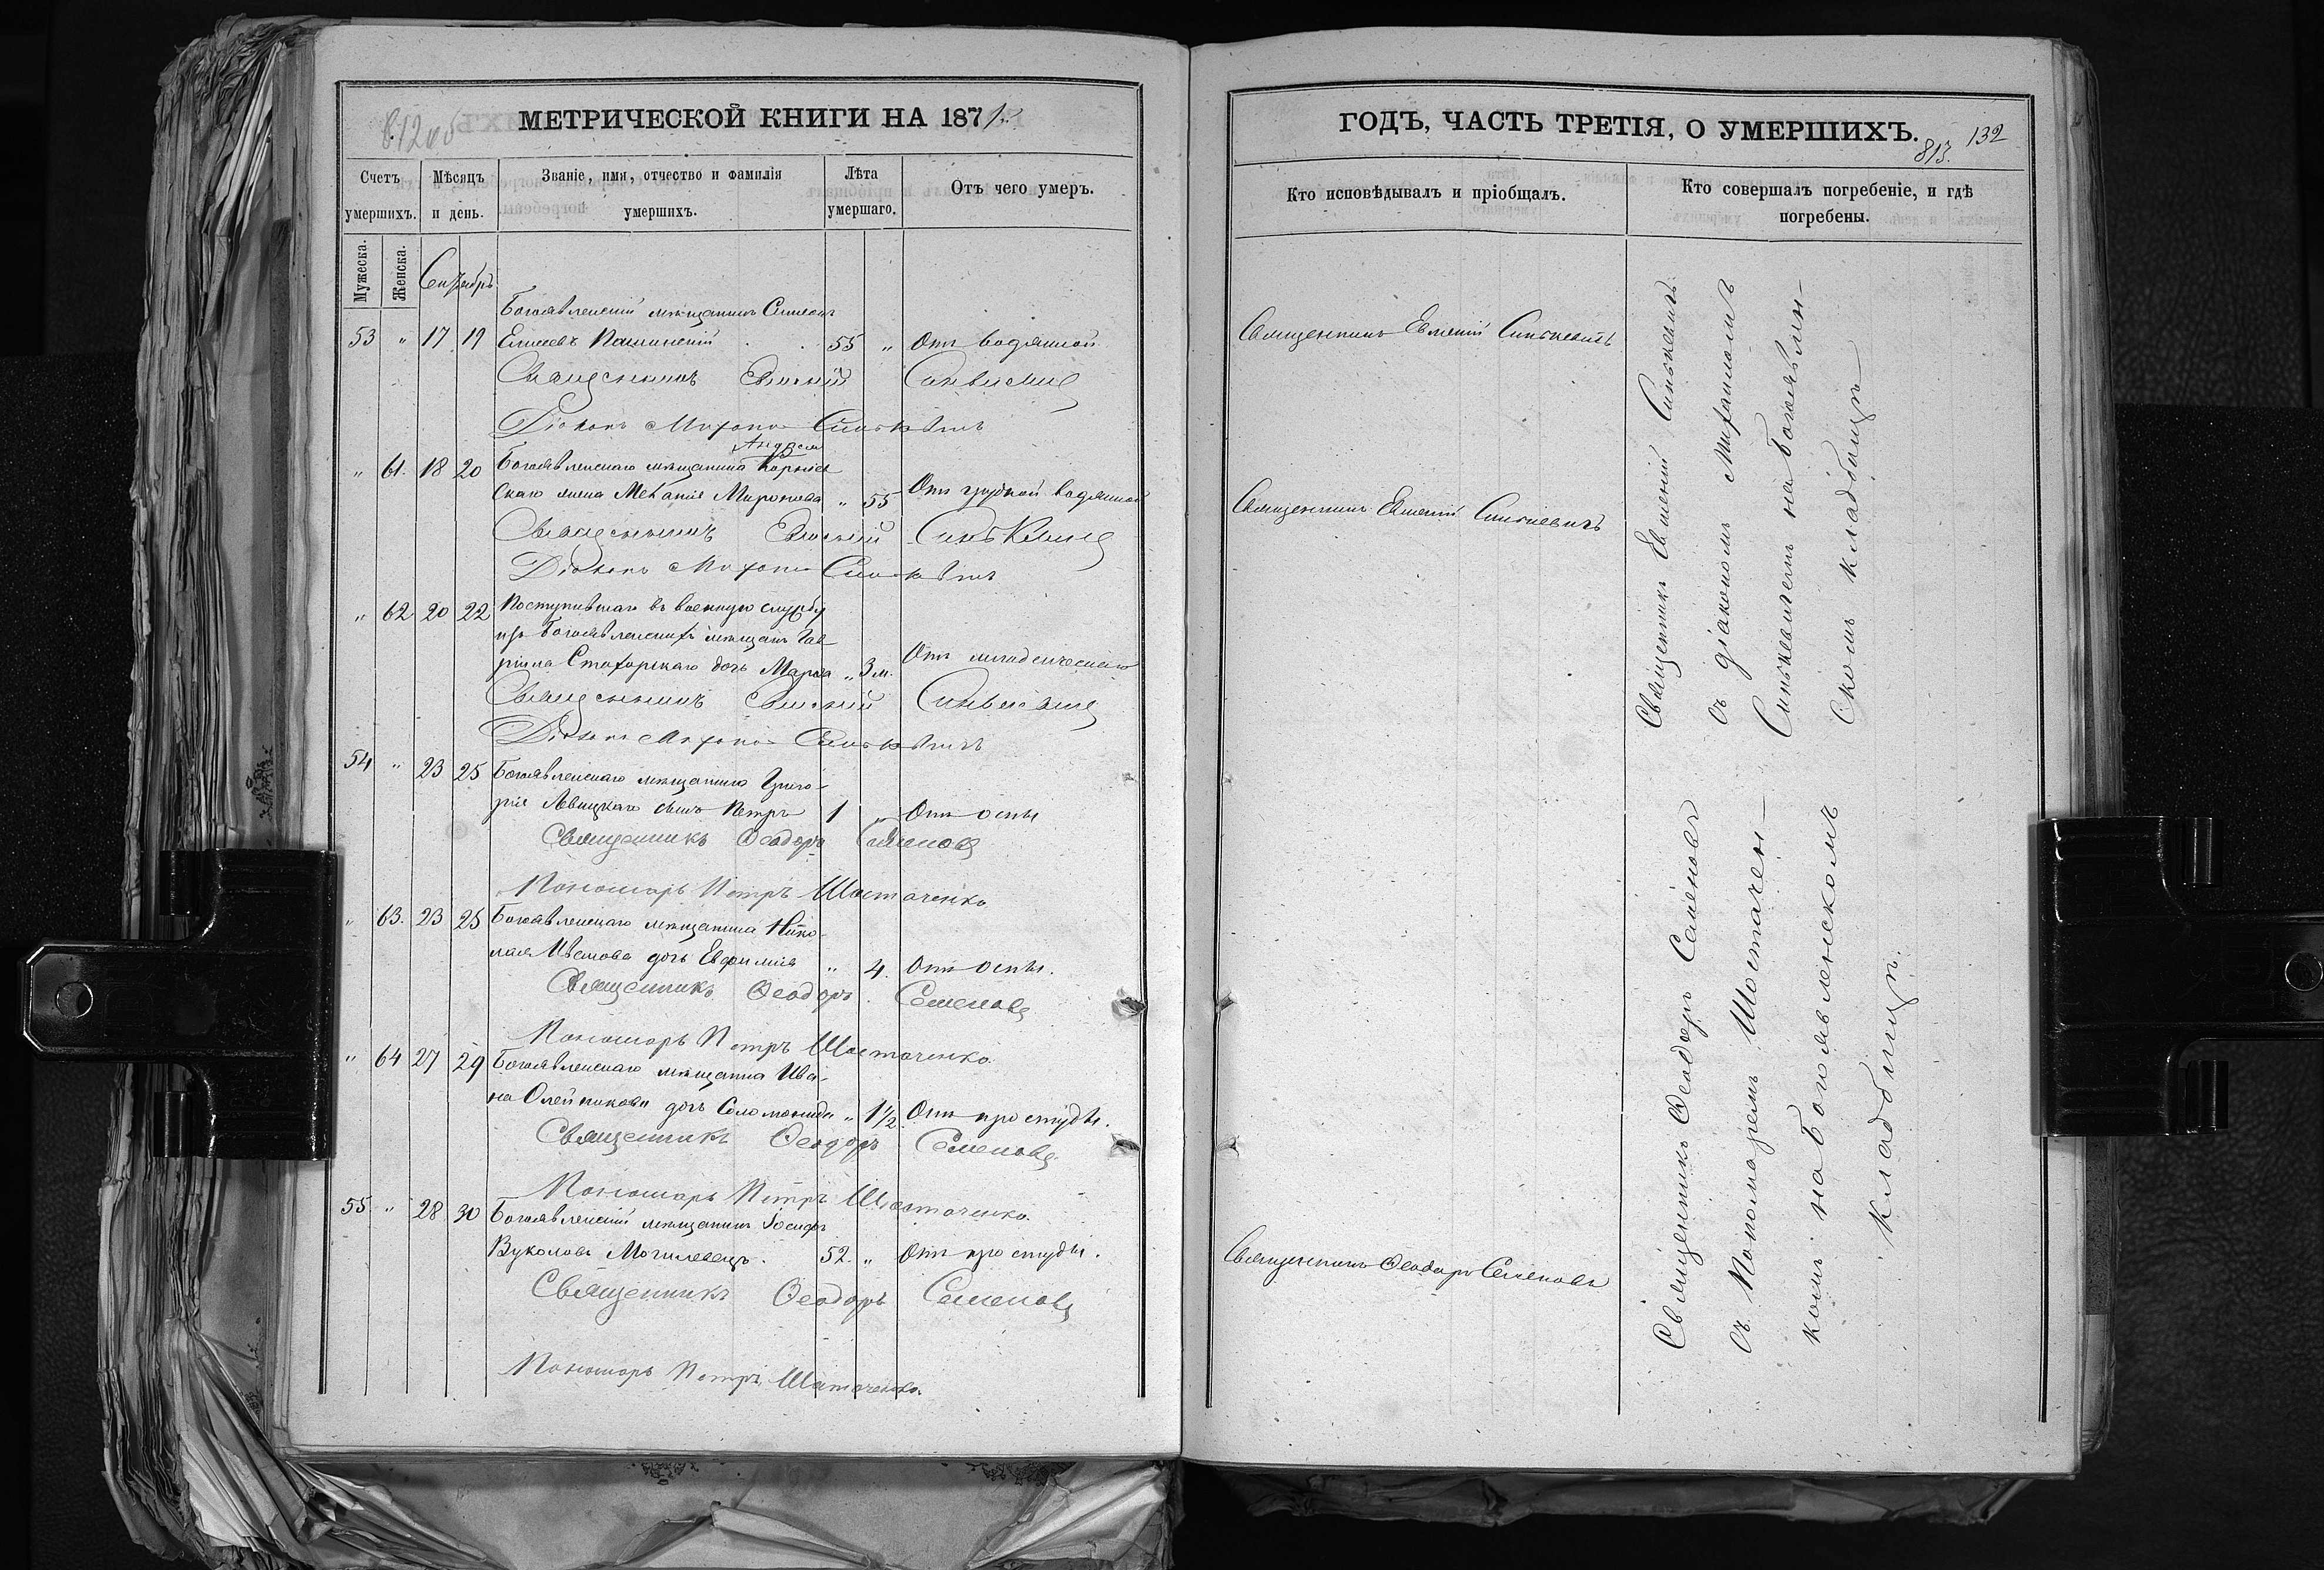 МЕТРИЧЕСКОЙ КНИГИ НА 1871
Счетъ умершихъ.
Мѣсяцъ и день.
Званіе, имя, отчество и фамилія умершихъ.
Лѣта умершаго.
Отъ чего умеръ.
Мужеска.
Женска.
Сентябрь
Богоявленскій мѣщанинъ Симеонъ
53 " 17 19 Елисеевъ 55 " Отъ водяной
Священникъ Евменій Синькевичъ
Діаконъ Митрофанъ Синькевичъ
Андрея
" 61. 18 20 Богоявленскаго мѣщанина Корніев
скаго жена Меланія Миронова " 55 Отъ грудной водяной
Священникъ Евменій Синькевичъ
Діаконъ Митрофанъ Синькевичъ
" 62 20 22 Поступившаго въ военную службу
изъ Богоявленскихъ мѣщанъ Гав
ріила дочь Марѳа " 3 м. Отъ младенческой
Священникъ Евменій Синькевичъ
Діаконъ Митрофанъ Синькевичъ
54 " 23 25 Богоявленскаго мѣщанина Григо-
рія Левицкаго сынъ Петръ 1 " Отъ оспы
Священникъ Ѳеодоръ Семеновъ
Пономарь Петръ Шостаченко
" 63. 23 25 Богоявленскаго мѣщанина Нико-
лая дочь Евфимія " 4. Отъ оспы.
Священникъ Ѳеодоръ Семеновъ
Пономарь Петръ Шостаченко
" 64 27 29 Богоявленскаго мѣщанина Ива-
на Олейникова дочь Соломонида " 1 1/2 Отъ простуды.
Священникъ Ѳеодоръ Семеновъ
Пономарь Петръ Шостаченко.
55 " 28 30 Богоявленскій мѣщанинъ Іосифъ
Вуколовъ Могилевецъ. 52. " Отъ простуды.
Священникъ Ѳеодоръ Семеновъ
Пономарь Петръ Шостаченко.
ГОДЪ, ЧАСТЬ ТРЕТІЯ, О УМЕРШИХЪ.
813. 132
Кто исповѣдывалъ и пріобщалъ.
Кто совершалъ погребеніе, и гдѣ погребены.
Священникъ Евменій Синькевичъ
Священникъ Евменій Синькевичъ
Священникъ Ѳеодоръ Семеновъ
Священникъ Евменій Синькевичъ
съ діакономъ Митрофаномъ
Синькевичемъ на Богоявлен-
скомъ кладбищѣ
Священникъ Ѳеодоръ Семеновъ
съ Пономаремъ Шостачен-
комъ на Богоявленскомъ
кладбищѣ.